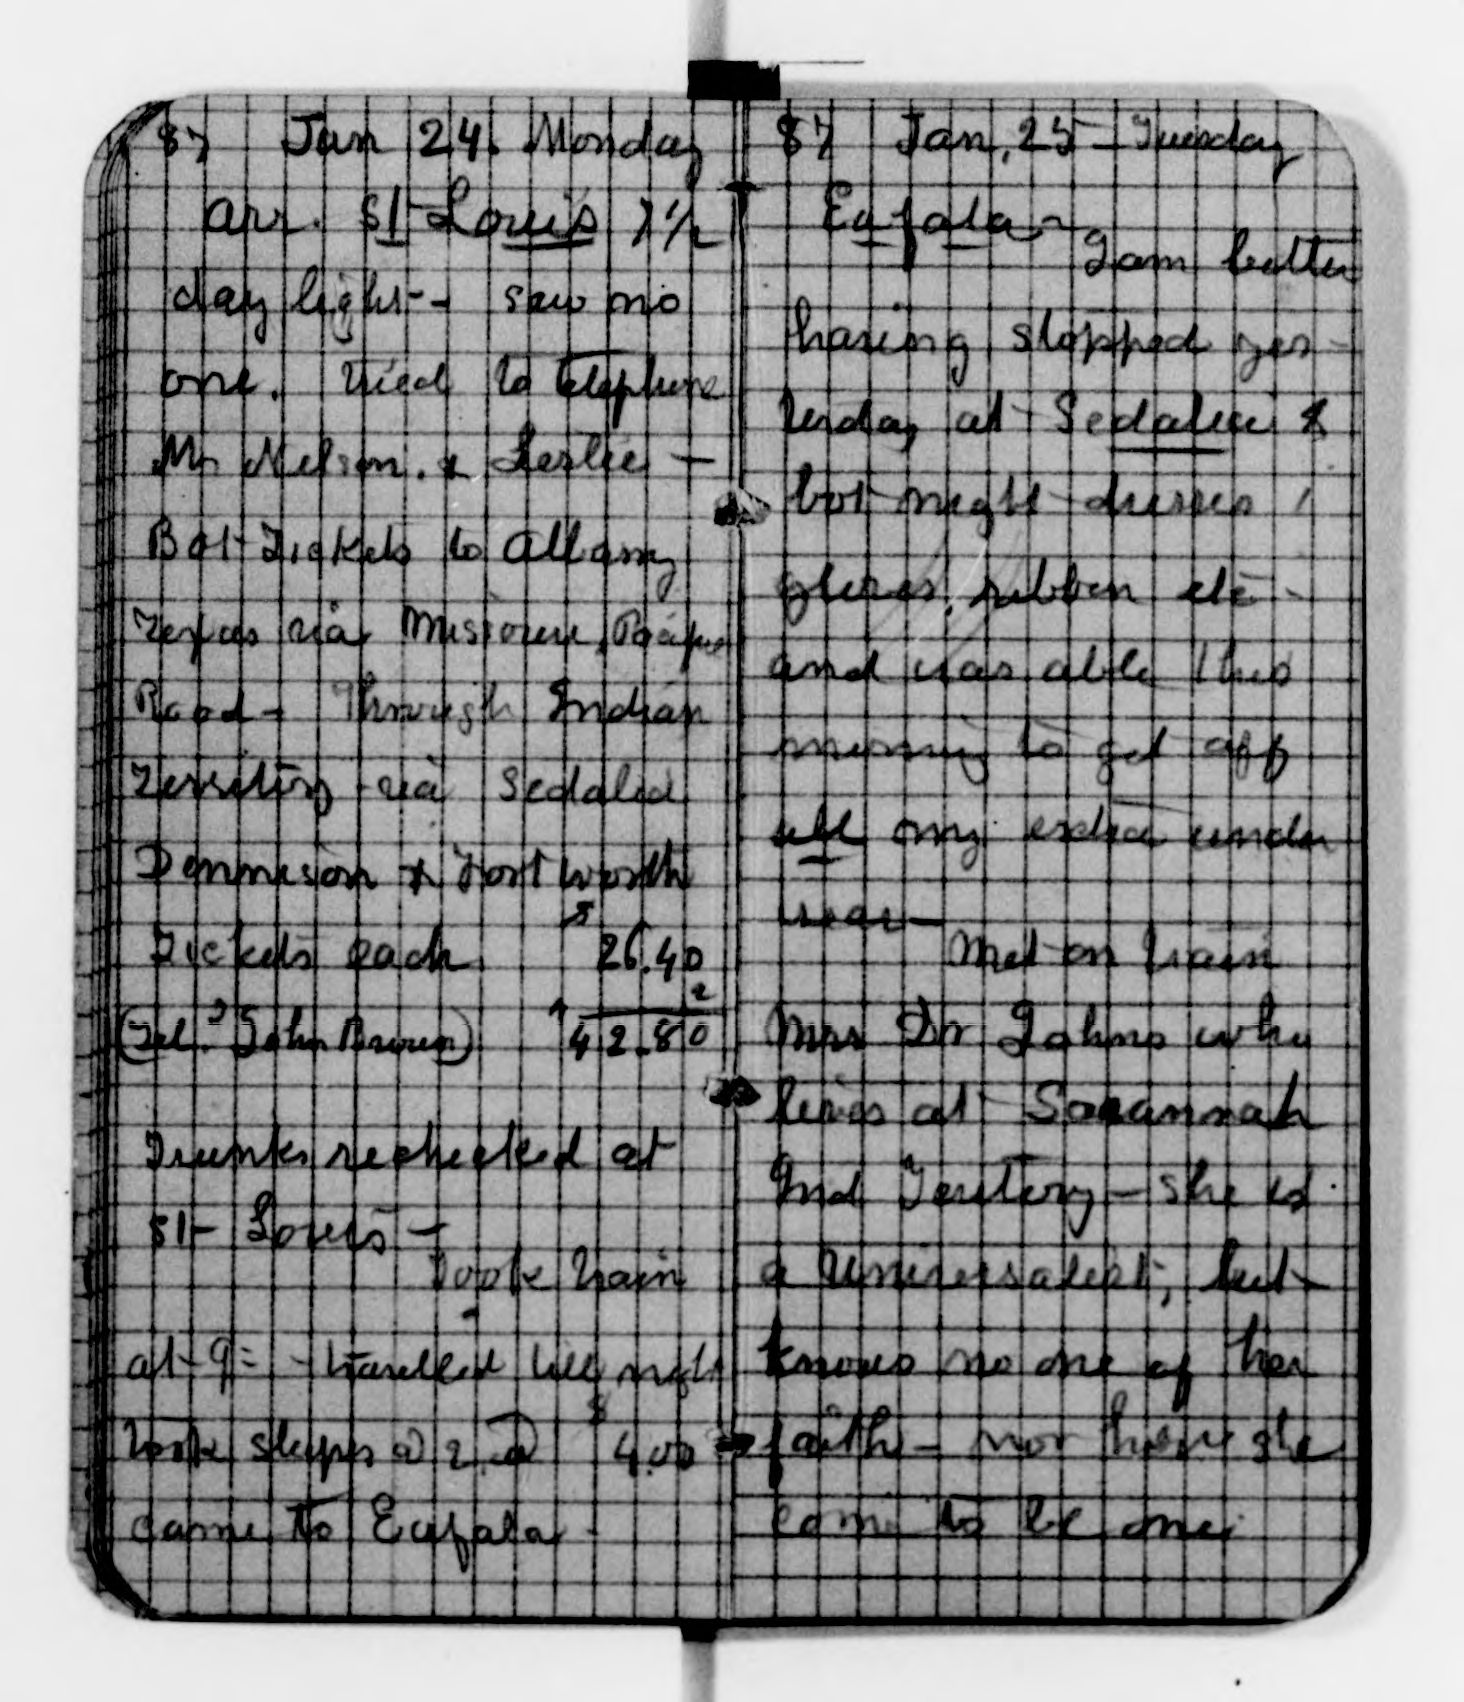 87 Jan 24. Monday
arr. St Louis 7 1/2
day light - saw no
one. tried to telephone
Mr Nelson. & Leslie -
Bot Tickets to Albany
Texas via Missouri, Pacific
Road - Through Indian
Territory via Sedalia
Dennison & Fort Worth
Tickets each $26.40
2
(Tel. John Brown) $42.80
Trunks rechecked at
St Louis -
Took train
at 9 = - travelled till night
took sleeper @ 2 @ $4.00
came to Eufala -
87 Jan, 25 - Tuesday
Eufala -
I am better
having stopped yes-
terday at Sedalia &
bot night dresses
gloves, ribbon etc -
and was able this
morning to get off
all my extra under
wear -
Met on train
Mrs Dr Johns who
lives at Savannah
Ind Teritory - she is
a Universalist, but
knows no one of her
faith - nor how she
come to be one.